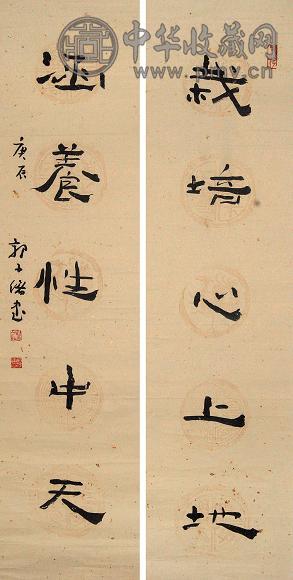 中华收藏网
栽培心上地
涵養性中天
庚辰
郭子緒書